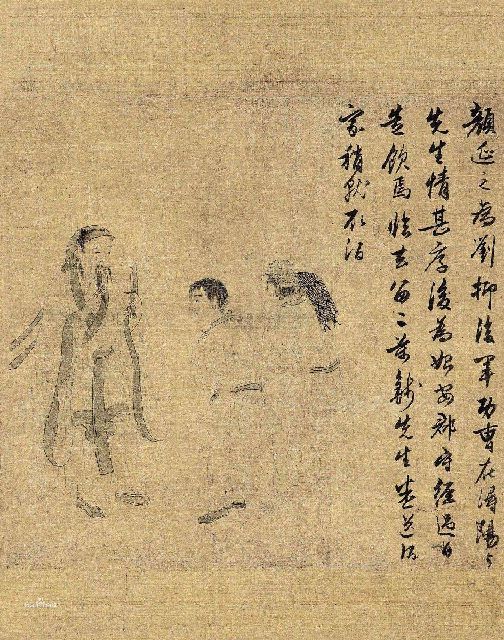 顏延之為劉柳後軍功曹在潯陽与
先生情甚厚後為始安郡守經過日
造飲焉臨去留二萬錢先生悉送酒
家稍就取酒